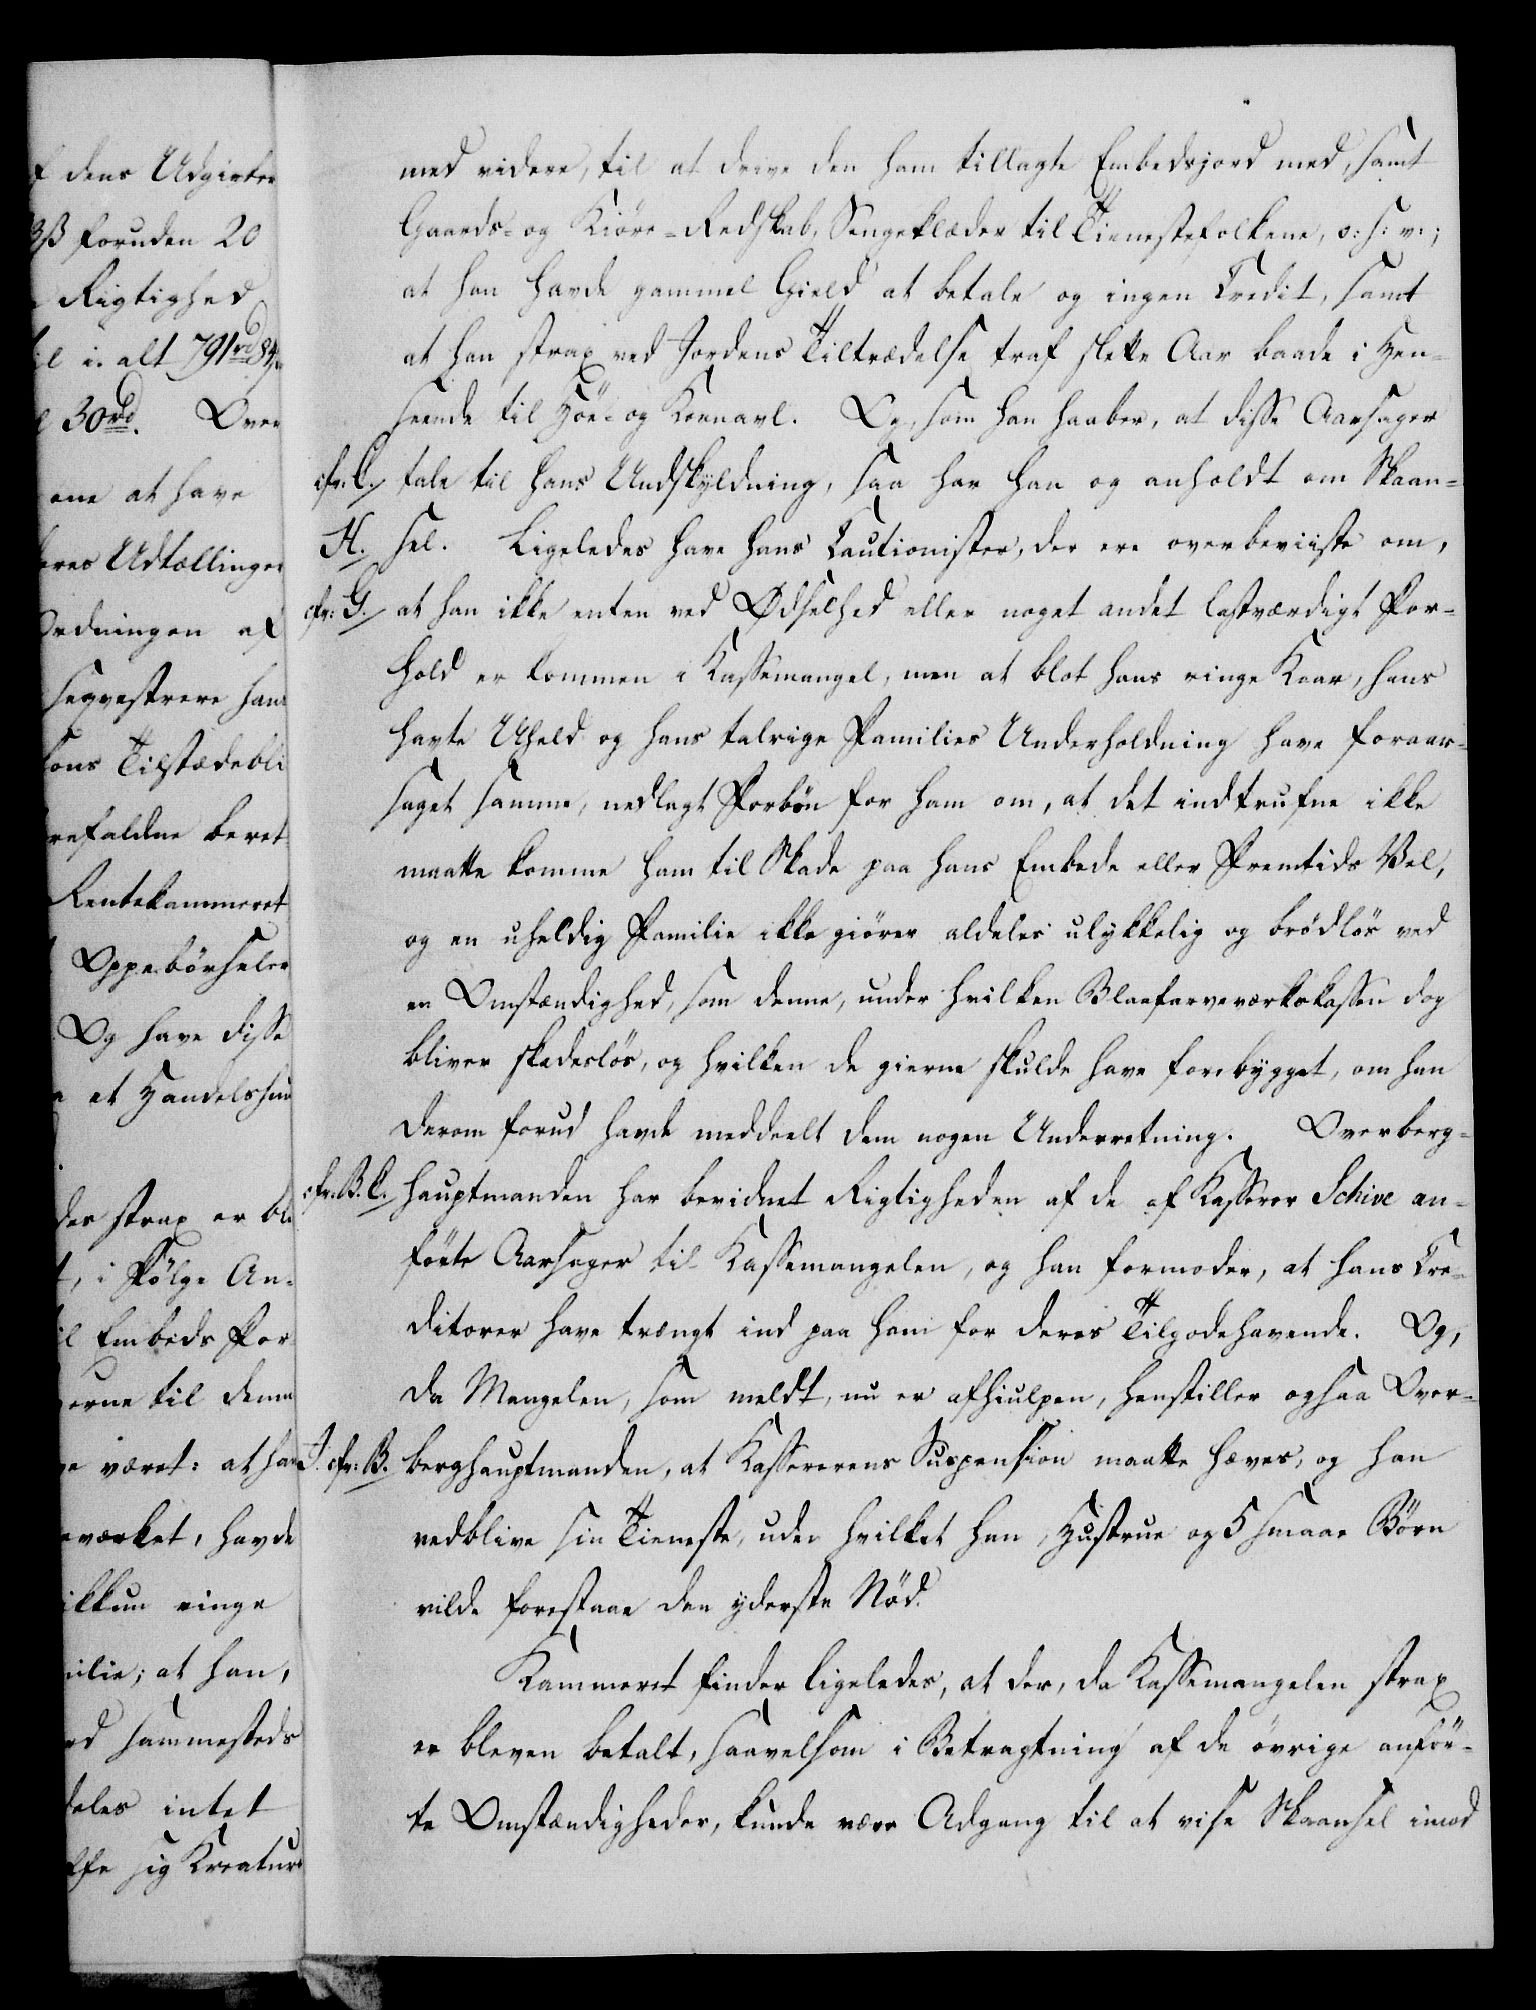 f dens Udgivter
3ß foruden 20
Rigtighed
il i alt 791rd 84
30rd. Over
ene at have
eres Udtællinger
Ordningen af
seqvestrere hans
hans Tilstædebli
refaldne beret
Rentekammeret
Oppebørseler
Og have disse
et Handelshuu
der strax er ble
t, i Følge An-
il Embeds For
erne til denne
e været: at han
værket, havde
ikkun ringe
milie; at han,
ed sammesteds
deles intet
ffe sig Kreaturer
med videre, til at drive den ham tillagte Embedsjord med, samt
Gaards- og Kiöre-Redskab, Sengeklæder til Tienestefolkene, o: s: v:;
at han havde gammel Gield at betale og ingen Credit, samt
at han strax ved Jordens Tiltrædelse traf slette Aar baade i Hen-
seende til Höe- og Kornavl. Og, som han haaber, at disse Aarsager
cfr: C. tale til hans Undskyldning, saa har han og anholdt om Skaan-
H. sel. Ligeledes have hans Cautionister, der ere overbeviiste om,
cfr: G. at han ikke enten ved Ødselhed eller noget andet lastværdigt For-
hold er kommen i Kassemangel, men at blot hans ringe Kaar, hans
havte Uheld og hans talrige Families Underholdning have foraar-
saget samme, nedlagt Forbön for ham om, at det indtrufne ikke
maatte komme ham til Skade paa hans Embede eller Fremtids Vel,
og en uheldig Familie ikke giöres aldeles ulykkelig og brödlös ved
en Omstændighed, som denne, under hvilken Blaafarveværkskassen dog
bliver skadeslös, og hvilken de gierne skulde have forebygget, om han
derom forud havde meddeelt dem nogen Underretning. Overberg-
cfr: B. C. hauptmanden har bevidnet Rigtigheden af de af Kasserer Schive an-
förte Aarsager til Kassemangelen, og han formoder, at hans Cre-
ditorer have trængt ind paa ham for deres Tilgodehavende. Og,
da Mangelen, som meldt, nu er afhiulpen, henstiller ogsaa Over-
J. cfr: B. berghauptmanden, at Kassererens Suspension maatte hæves, og han
vedblive sin Tieneste, uden hvilket han, Hustrue og 5 smaae Börn
vilde forestaae den yderste Nöd.
Kammeret finder ligeledes, at der, da Kassemangelen strax
er bleven betalt, saavelsom i Betragtning af de övrige anför-
te Omstændigheder, kunde være Adgang til at vise Skaansel imod